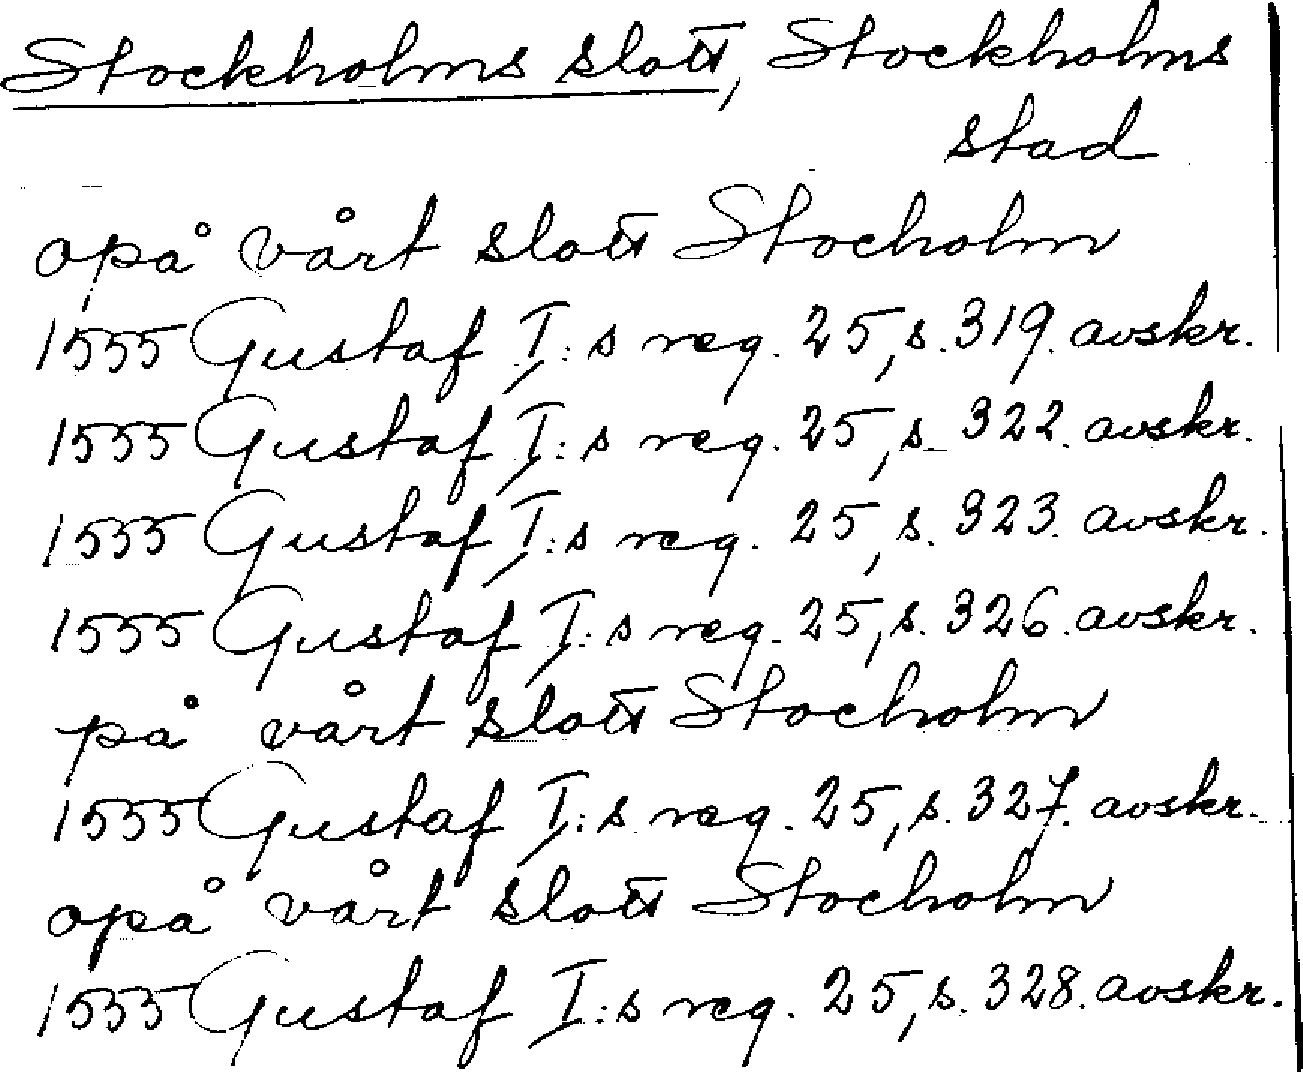 Stockholms slott, Stockholms
stad
opå vårt slott Stocholm
1555 Gustaf I:s reg. 25, s. 319. avskr.
1555 Gustaf I:s reg. 25, s. 322. avskr.
1555 Gustaf I:s reg. 25, s. 323. avskr.
1555 Gustaf I:s reg. 25, s. 326. avskr.
på vårt slott Stocholm
1555 Gustaf I:s reg. 25, s. 327. avskr.
opå vårt slott Stocholm
1555 Gustaf I:s reg. 25, s. 328. avskr.